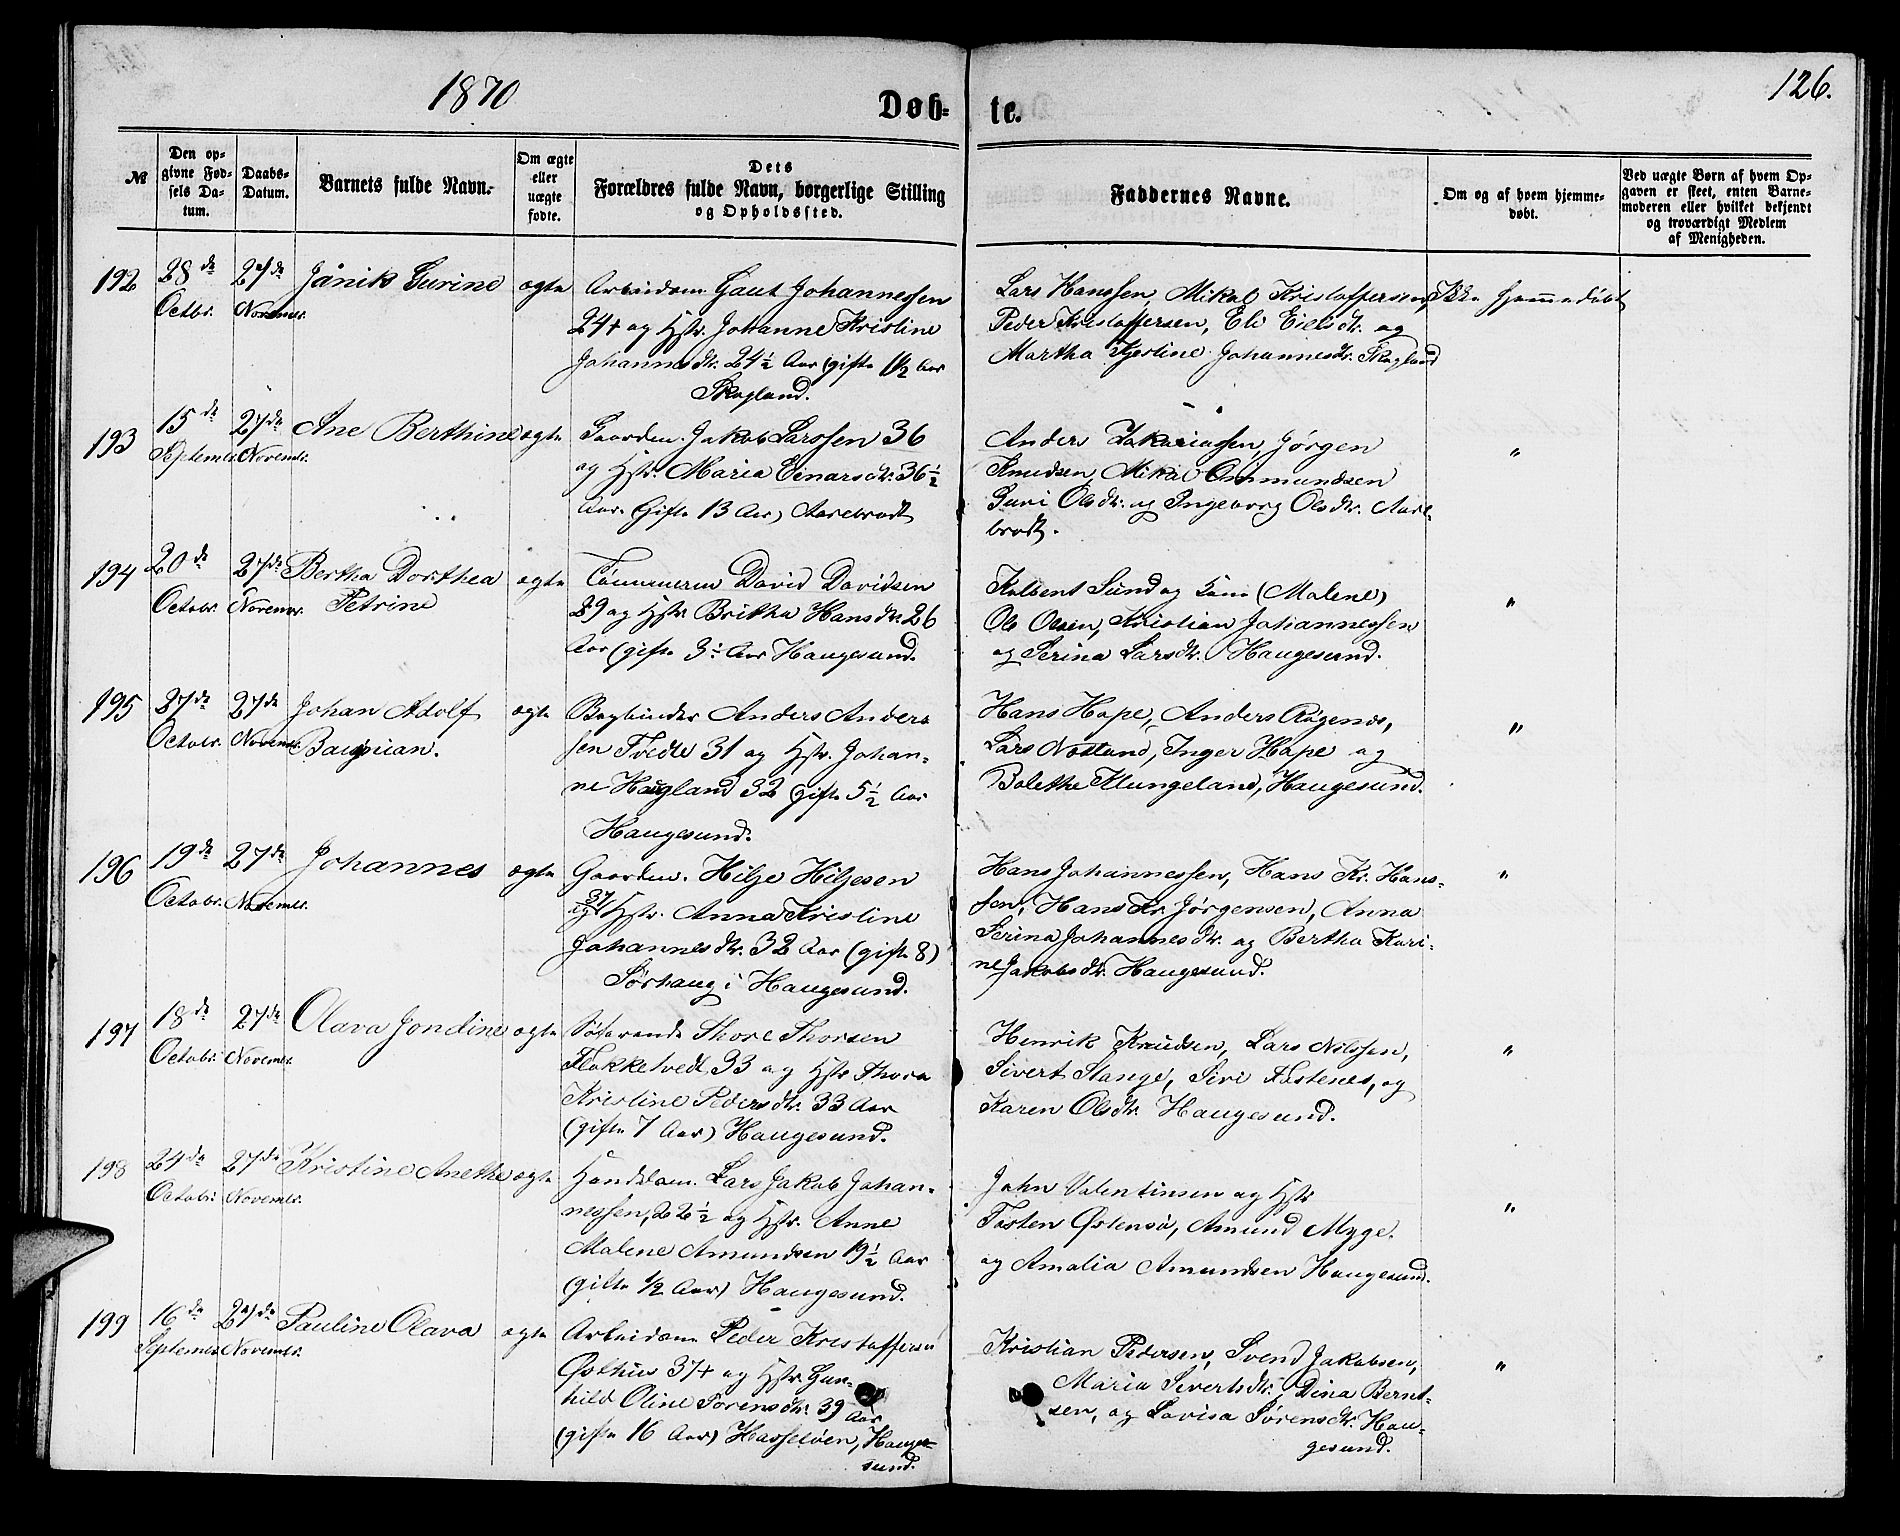 1870
126.
Døb-
te.
№
Den op-
givne Fød-
sels Da-
tum.
Daabs-
Datum.
Barnets fulde Navn.
Om ægte
eller
uægte
fødte.
Dets
Forældres fulde Navn, borgerlige Stilling
og Opholdssted.
Faddernes Navne.
Om og af hvem hjemme-
døbt.
Ved uægte Børn af hvem Op-
gaven er skeet, enten Barne-
moderen eller hvilket bekjendt
og troværdigt Medlem
af Menigheden.
192
28de
Octbr.
27de
Novembr.
Jánik Gurine
ægte
Arbeidsm. Gaut Johannessen
24+ og Hstr. Johanne Kristine
Johannesdtr. 24½ Aar (gifte 1½ Aar
Skogland.
Lars Hanssen, Mikal Kristoffersen,
Peder Kristoffersen, Eli Eielsdtr. og
Martha Kjerstine Johannesdtr. Skogland
Ikke hjemmedøbt
193
15de
Septembr.
27de
Novembr.
Ane Berthine
ægte
Gaardm. Jakob Larssen 36
og Hstr. Maria Einarsdtr. 36½
Aar. (Gifte 13 Aar) Aarebrodt
Anders Zakariassen, Jørgen
Knudsen, Mikal Ommundsen
Guri Olsdtr. og Ingeborg Olsdtr. Aare-
brodt.
"
194
20de
Octobr.
27de
Novembr.
Bertha Dorthea
Petrine
ægte
Tømmerm David Davidsen
29 og Hstr. Britha Hansdtr. 26
Aar (gifte 3½ Aar Haugesund.
Kolbent Sund og Kone (Malene)
Ole Olsen, Kristian Johannessen
og Serina Larsdtr. Haugesund.
"
195
27de
Octobr.
27de
Novembr.
Johan Adolf
ægte
Bogbinder Anders Anders
sen Tvedte 31 og Hstr. Johan-
ne Haugland 32 (gifte 5½ Aar
Haugesund.
Hans Hope, Anders Røgenes,
Lars Nøtland, Inger Hope og
Bolethe Klungeland, Haugesund.
"
196
19de
Octobr.
27de
Novembr.
Johannes
ægte
Gaardm. Hilje Hiljesen
31
og Hstr. Anna Kristine
Johannesdtr. 32 Aar (gifte 8)
Sørhaug i Haugesund.
Hans Johannessen, Hans Kr. Hans-
sen, Hans Kr. Jørgensen, Anna
Serina Johannesdtr. og Bertha Kari-
ne Jakobsdtr. Haugesund.
"
197
18de
Octobr.
27de
Novembr.
Olava Jondine
ægte
Søfarende Thore Thorsen
Flokketvedt 33 og Hstr Thora
Kristine Pedersdtr. 33 Aar
(gifte 7 Aar) Haugesund.
Henrik Knudsen, Lars Nilssen,
Sivert Stange, Siri Fastenes, og
Karen Olsdtr. Haugesund.
"
198
24de
Octobr.
27de
Novembr.
Kristine Anethe
ægte
Handelsm. Lars Jakob Johan-
nessen, 22½ og Hstr. Anne
Malene Amundsen 19½ Aar
(gifte ½ Aar) Haugesund.
John Valentinsen og Hstr
Tosten Østensø, Amund Myge.
og Amalia Amundsen Haugesund.
"
199
16de
Septembr.
27de
Novembr.
Pauline Olava
ægte
Arbeidsm Peder Kristoffersen
Østhus 37+ og Hstr Gun-
hild Oline Sørensdtr. 39 Aar
(gifte 16 Aar) Hasseløen, Hauge-
sund.
Kristian Pedersen, Svend Jakobsen,
Maria Sivertsdtr., Dina Bernt-
sen, og Lovisa Sørensdtr. Hau-
gesund.
"